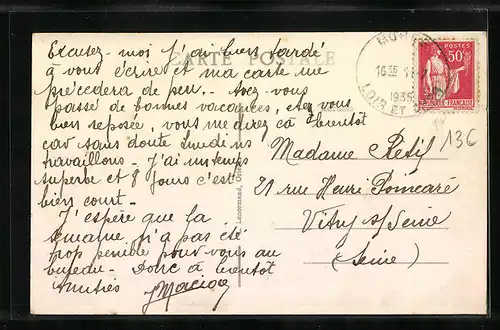 CARTE POSTALE
Excusez-moi j'ai bien tardé
à vous écrire et ma carte me
précédera de peu. Avez-vous
passé de bonnes vacances, êtes vous
bien reposée, vous me direz cà bientôt
car sans doute lundi ns
travaillons - J'ai un temps
superbe et 8 jours c'est
bien court -
J'espère que la
semaine n'a pas été
trop penible pour vous au
bureau - Donc à bientôt
Amitiés
Madame Rétif
21 rue Henri Poincaré
Vitry s/Seine
(Seine)
136
POSTES
50c
FRANÇAISE
16
1935
LOIR ET
Lenormand,